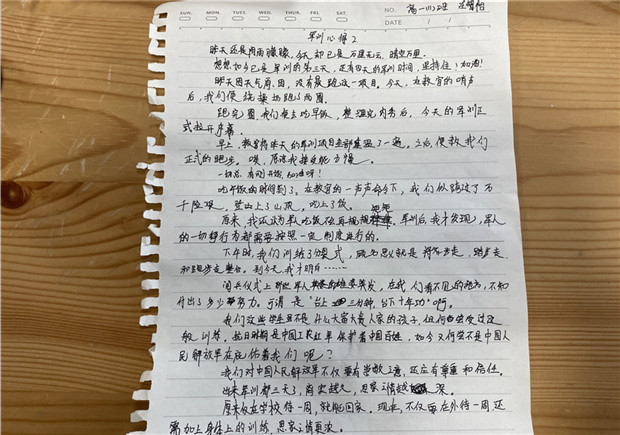 SUN. MON. TUE. WED. THU. FRI. SAT.
NO. 高一(12)班
DATE / /
军训心得2
昨天还是雨雨朦朦,今天却已是万里无云,晴空万里。
想想如今已是军训的第三天,还有四天的军训时间,坚持住!加油!
昨天因天气原因,没有晨跑这一项目,今天,在教官的哨声
后,我们便绕操场跑了两圈。
跑完圈我们便去吃早饭,整理完内务后,今天的军训正
式拉开序幕。
早上,教官将昨天的军训项目全部 了一遍。之后,便教我们
正式的跑步。唉,原谅我接受能力慢。
一切总有刚开始,600 呀!
吃午饭的时间到了。在教官的一声声命令下,我们似跨过了万
千险艰,登山上了山顶,吃上了饭。
原来,我还以为军人吃饭不用再规规矩矩,军训后,我才发现,军人
的一切都行为都需要按照一定制度进行的。
下午时,我们训练了分列式,顾名思义就是将齐步走,踏步走
和跑步走整合。到今天我才明白……
阅兵仪式上那些军人 英姿焕发,在我们看不见的地方,不知
付出了多少努力。可谓是“台上三分钟,台下十年功”啊。
我们这些学生虽不是什么大富大贵人家的孩子,但何尝受过这
般训练,抗日时期是中国工农红军保护着中国百姓,如今又何尝不是中国人
民解放军在庇佑着我们呢?
我们对中国人民解放军不仅要有崇敬之意,还应有尊重和信任。
出来军训都三天了,离家越久,思家之情越深。
原来仅在学校待一周,就能回家。现在,不仅要在外待一周还
需加上身体上的训练,思家之情更浓。